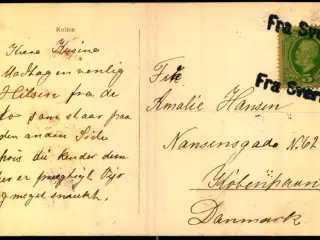 Kullen
Kjære Kusine
Modtagen venlig
Hilsen fra de
to som staar paa
den anden Side
hvis du kender dem
her er prægtigt
og meget smukt.
Fra Sve
Fra Sver
5
Frk
Amalie Hansen
Nansensgade N. 62
Kjöbenhavn
Danmark